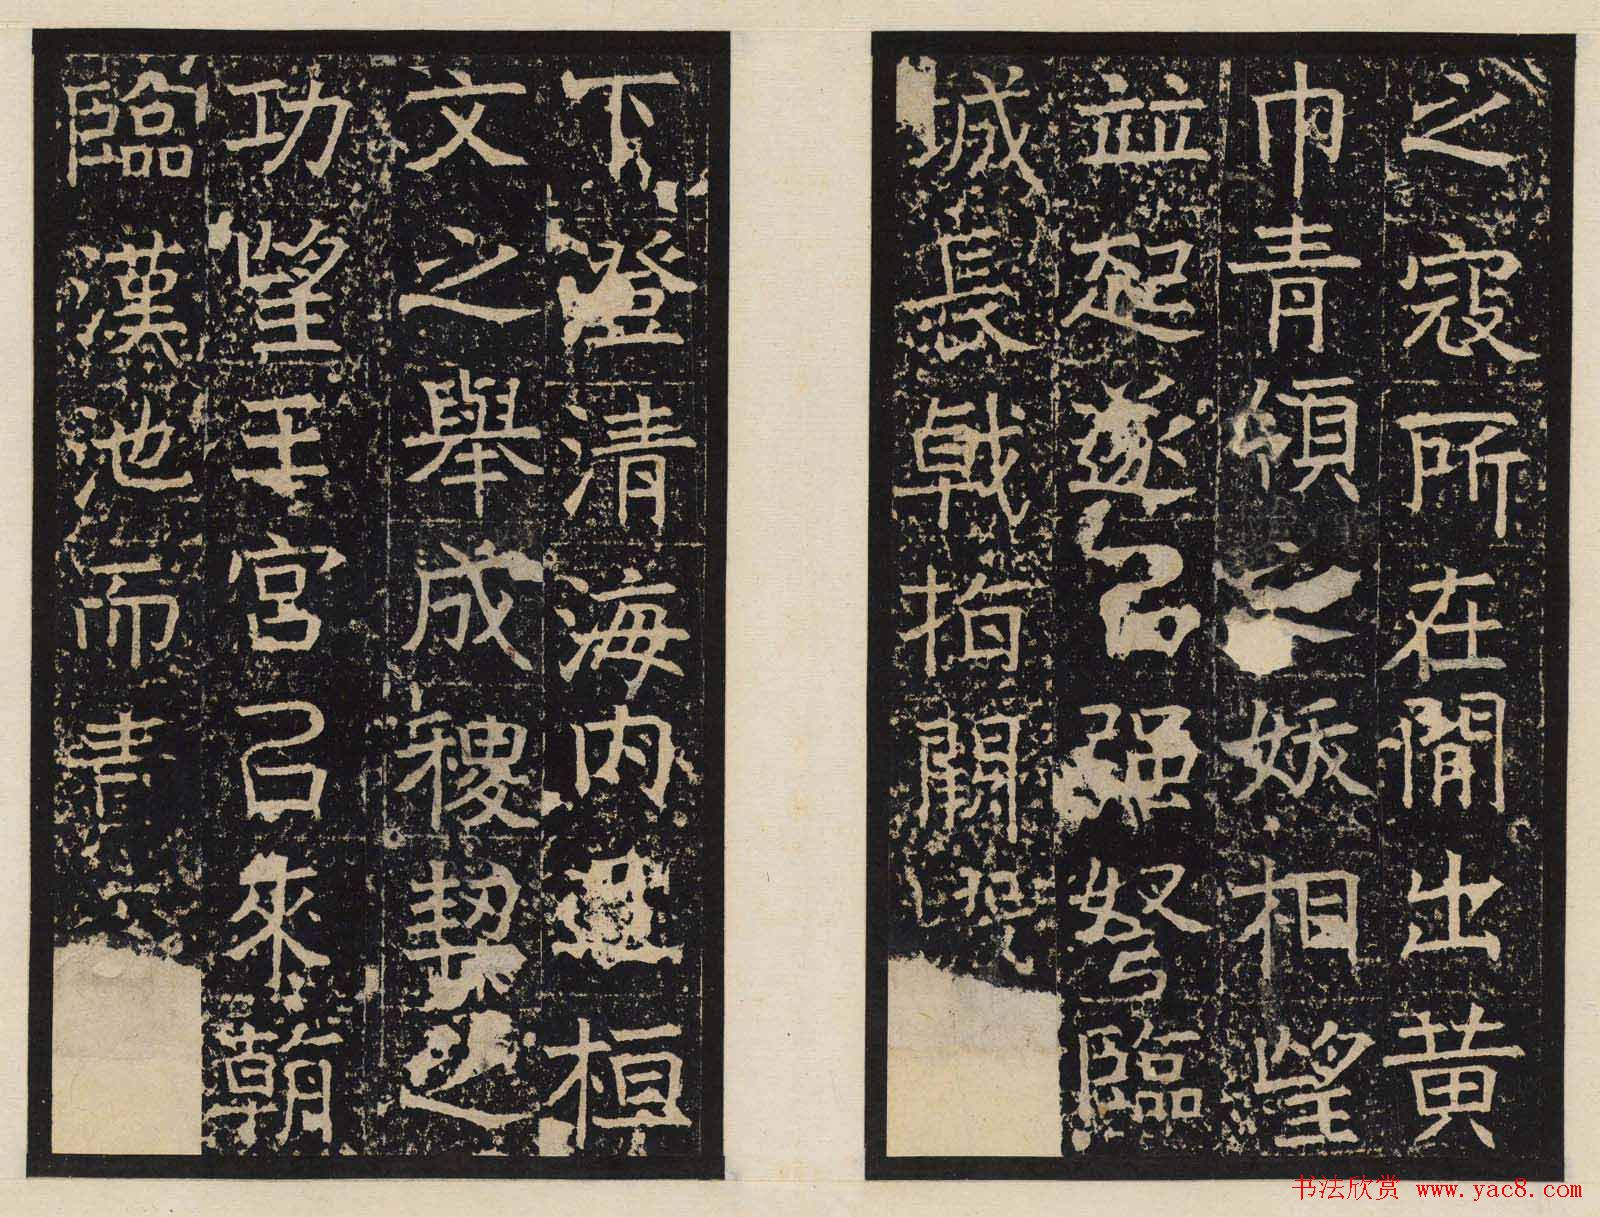 之寇所在閒出黄
巾青領之妖相望
並起遂㠯强弩臨
城長戟指闕
下澄清海内且桓
文之舉成稷契之
功望王宮㠯來朝
臨漢池而
书法欣赏 www.yac8.com